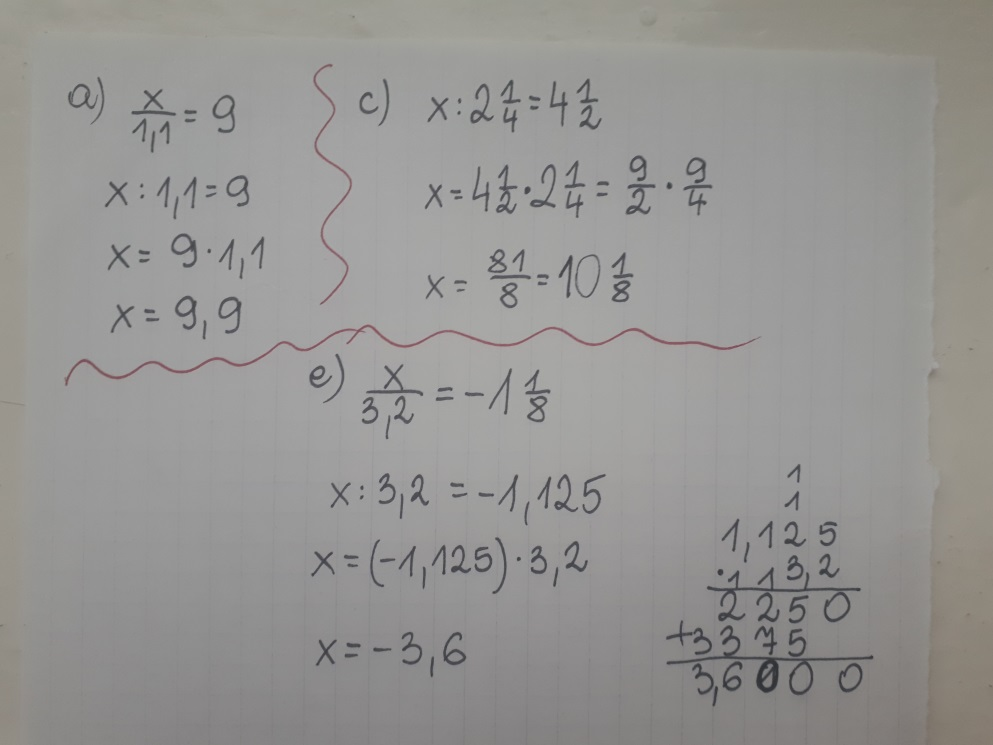 a) x/1,1 = 9
x : 1,1 = 9
x = 9 · 1,1
x = 9,9
c) x : 2 1/4 = 4 1/2
x = 4 1/2 · 2 1/4 = 9/2 · 9/4
x = 81/8 = 10 1/8
e) x/3,2 = -1 1/8
x : 3,2 = -1,125
x = (-1,125) · 3,2
x = -3,6
1
1
1,125
· 1 1 3,2
2250
+3375
3,6000